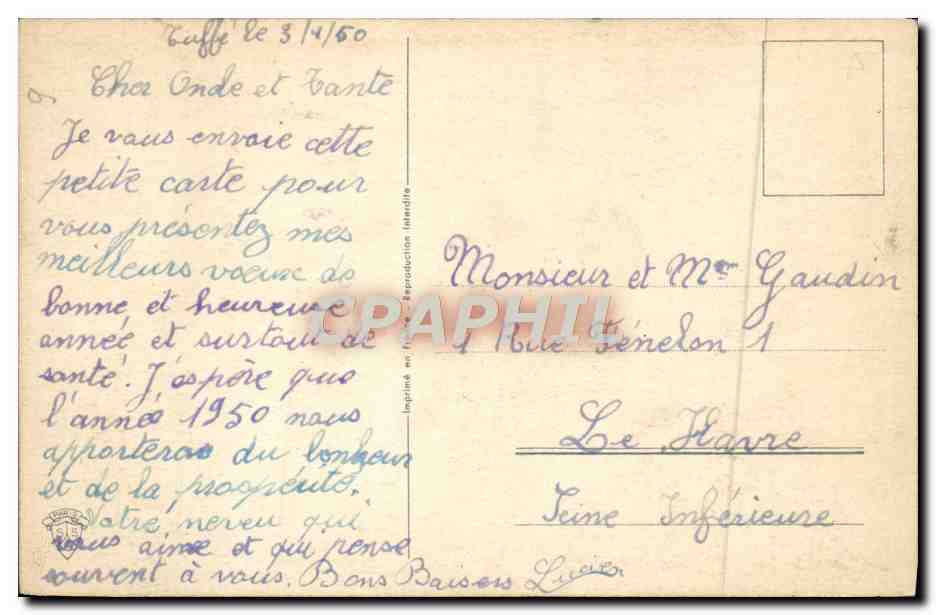 Tuffé le 3/1/50
Cher Oncle et Tante
Je vous envoie cette
petite carte pour
vous présentez mes
meilleurs voeux de
bonne et heureuse
année et surtout de
santé. J'espère que
l'année 1950 nous
apportera du bonheur
et de la prospérité.
Votre neveu qui
vous aime et qui pense
souvent à vous. Bons Baisers Lucien
Imprimé en France Reproduction Interdite
Monsieur et Mme Gaudin
1 Rue Fénelon 1
Le Havre
Seine Inférieure
CPAPHIL
PARIS